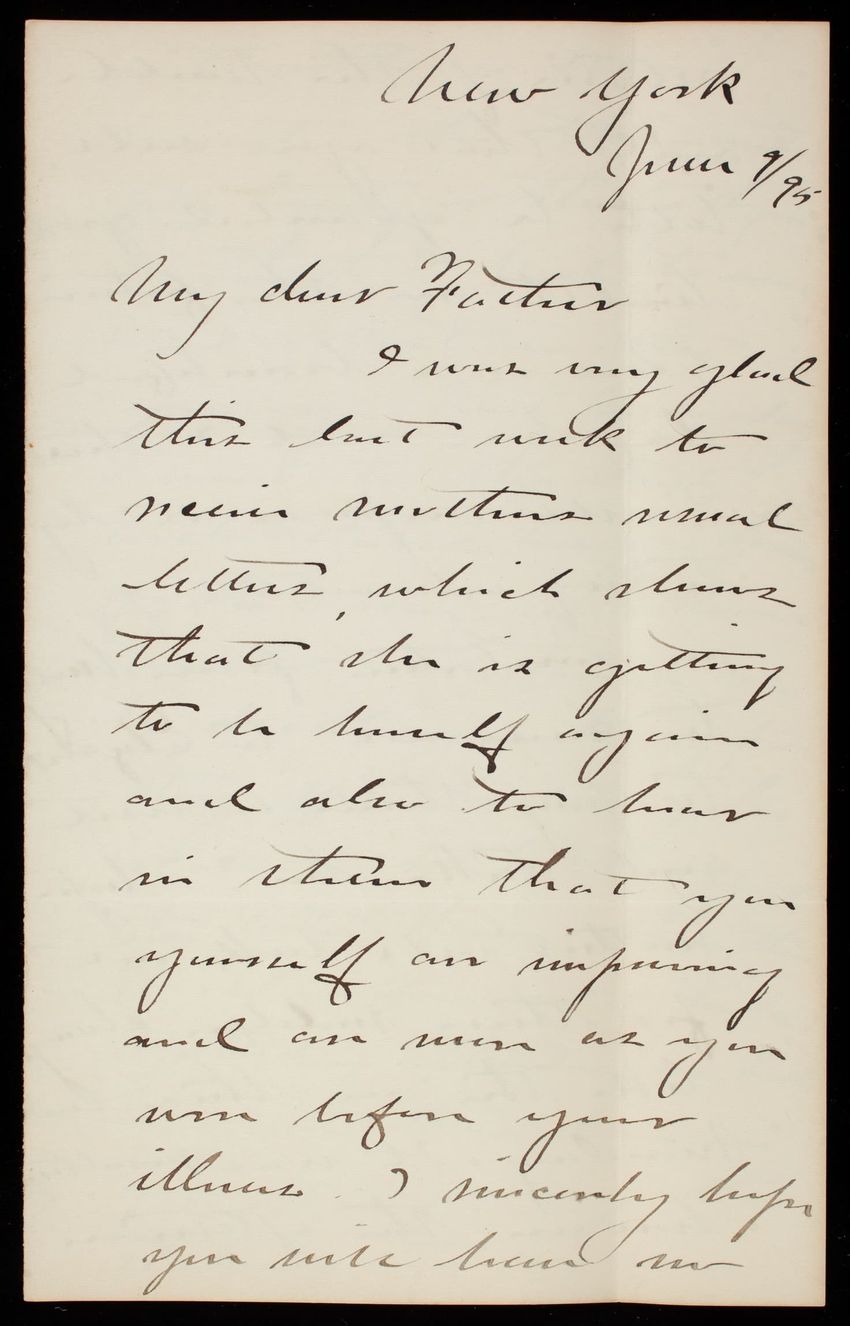 New York
June 9/95
My dear Father
I was very glad
this last week to
receive mothers usual
letters, which shows
that she is getting
to be herself again
and also to hear
in them that you
yourself are improving
and are more as you
were before your
illness. I sincerely hope
you will have no